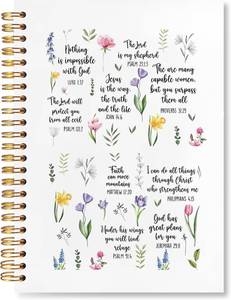 Nothing
is impossible
with God
LUKE 1:37
The Lord
is my shepherd
PSALM 23:1
The are many
capable women,
but you surpass
them all
PROVERBS 31:29
Jesus is the
way, the
truth and the
life
JOHN 14:6
The Lord will
protect you
from all evil
PSALM 121:7
Faith
can move
mountains
MATTHEW 17:20
I can do all
things through
Christ
who strengthens
me
PHILIPPIANS 4:13
Under his wings
you will find
refuge
PSALM 91:4
God has
great plans
for you
JEREMIAH 29:11